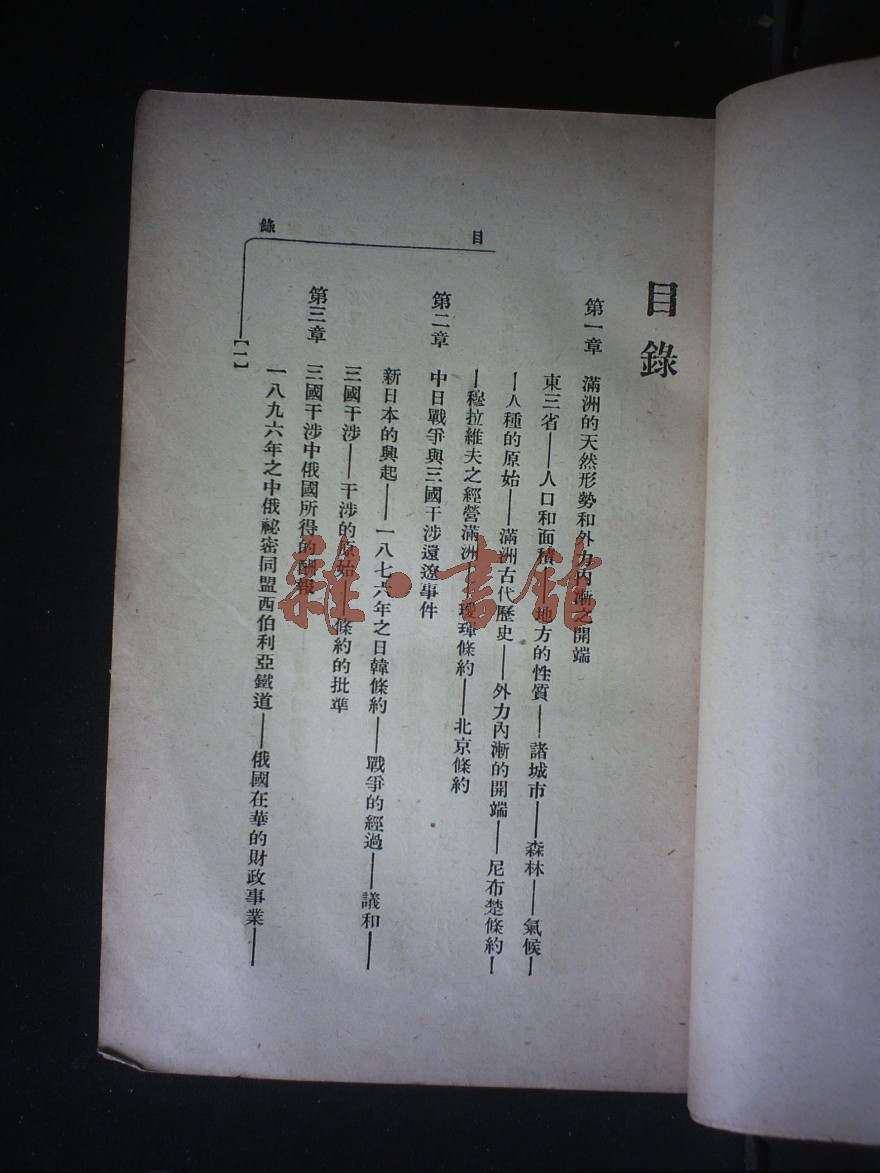 目錄
第一章　滿洲的天然形勢和外力內漸之開端
東三省——人口和面積——地方的性質——諸城市——森林——氣候—
—人種的原始——滿洲古代歷史——外力內漸的開端——尼布楚條約—
—穆拉維夫之經營滿洲——璦琿條約——北京條約
第二章　中日戰爭與三國干涉還遼事件
新日本的興起——一八七六年之日韓條約——戰爭的經過——議和——
三國干涉——干涉的原始——條約的批準
第三章　三國干涉中俄國所得的酬報
一八九六年之中俄祕密同盟西伯利亞鐵道——俄國在華的財政事業——
目　錄
【一】
雜·書館